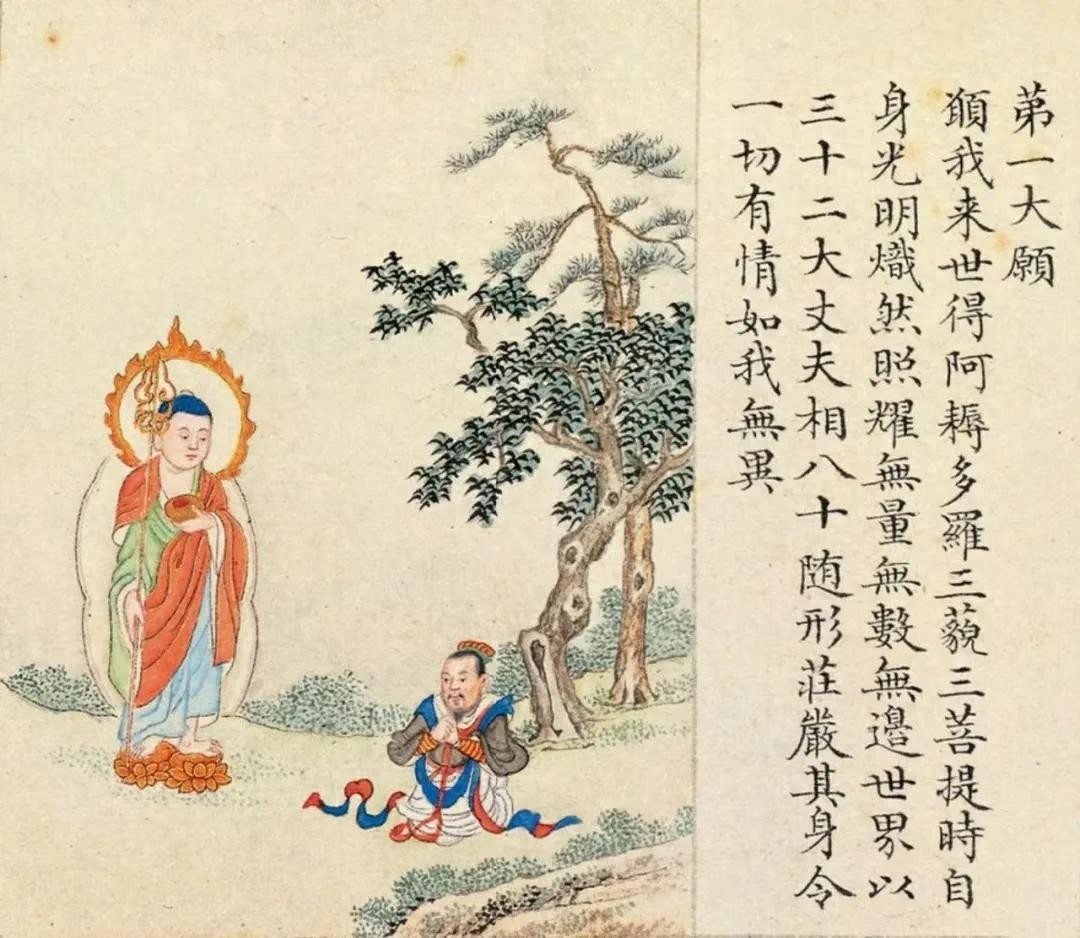 第一大願
願我来世得阿耨多羅三藐三菩提時自
身光明熾然照耀無量無數無邊世界以
三十二大丈夫相八十随形莊嚴其身令
一切有情如我無異